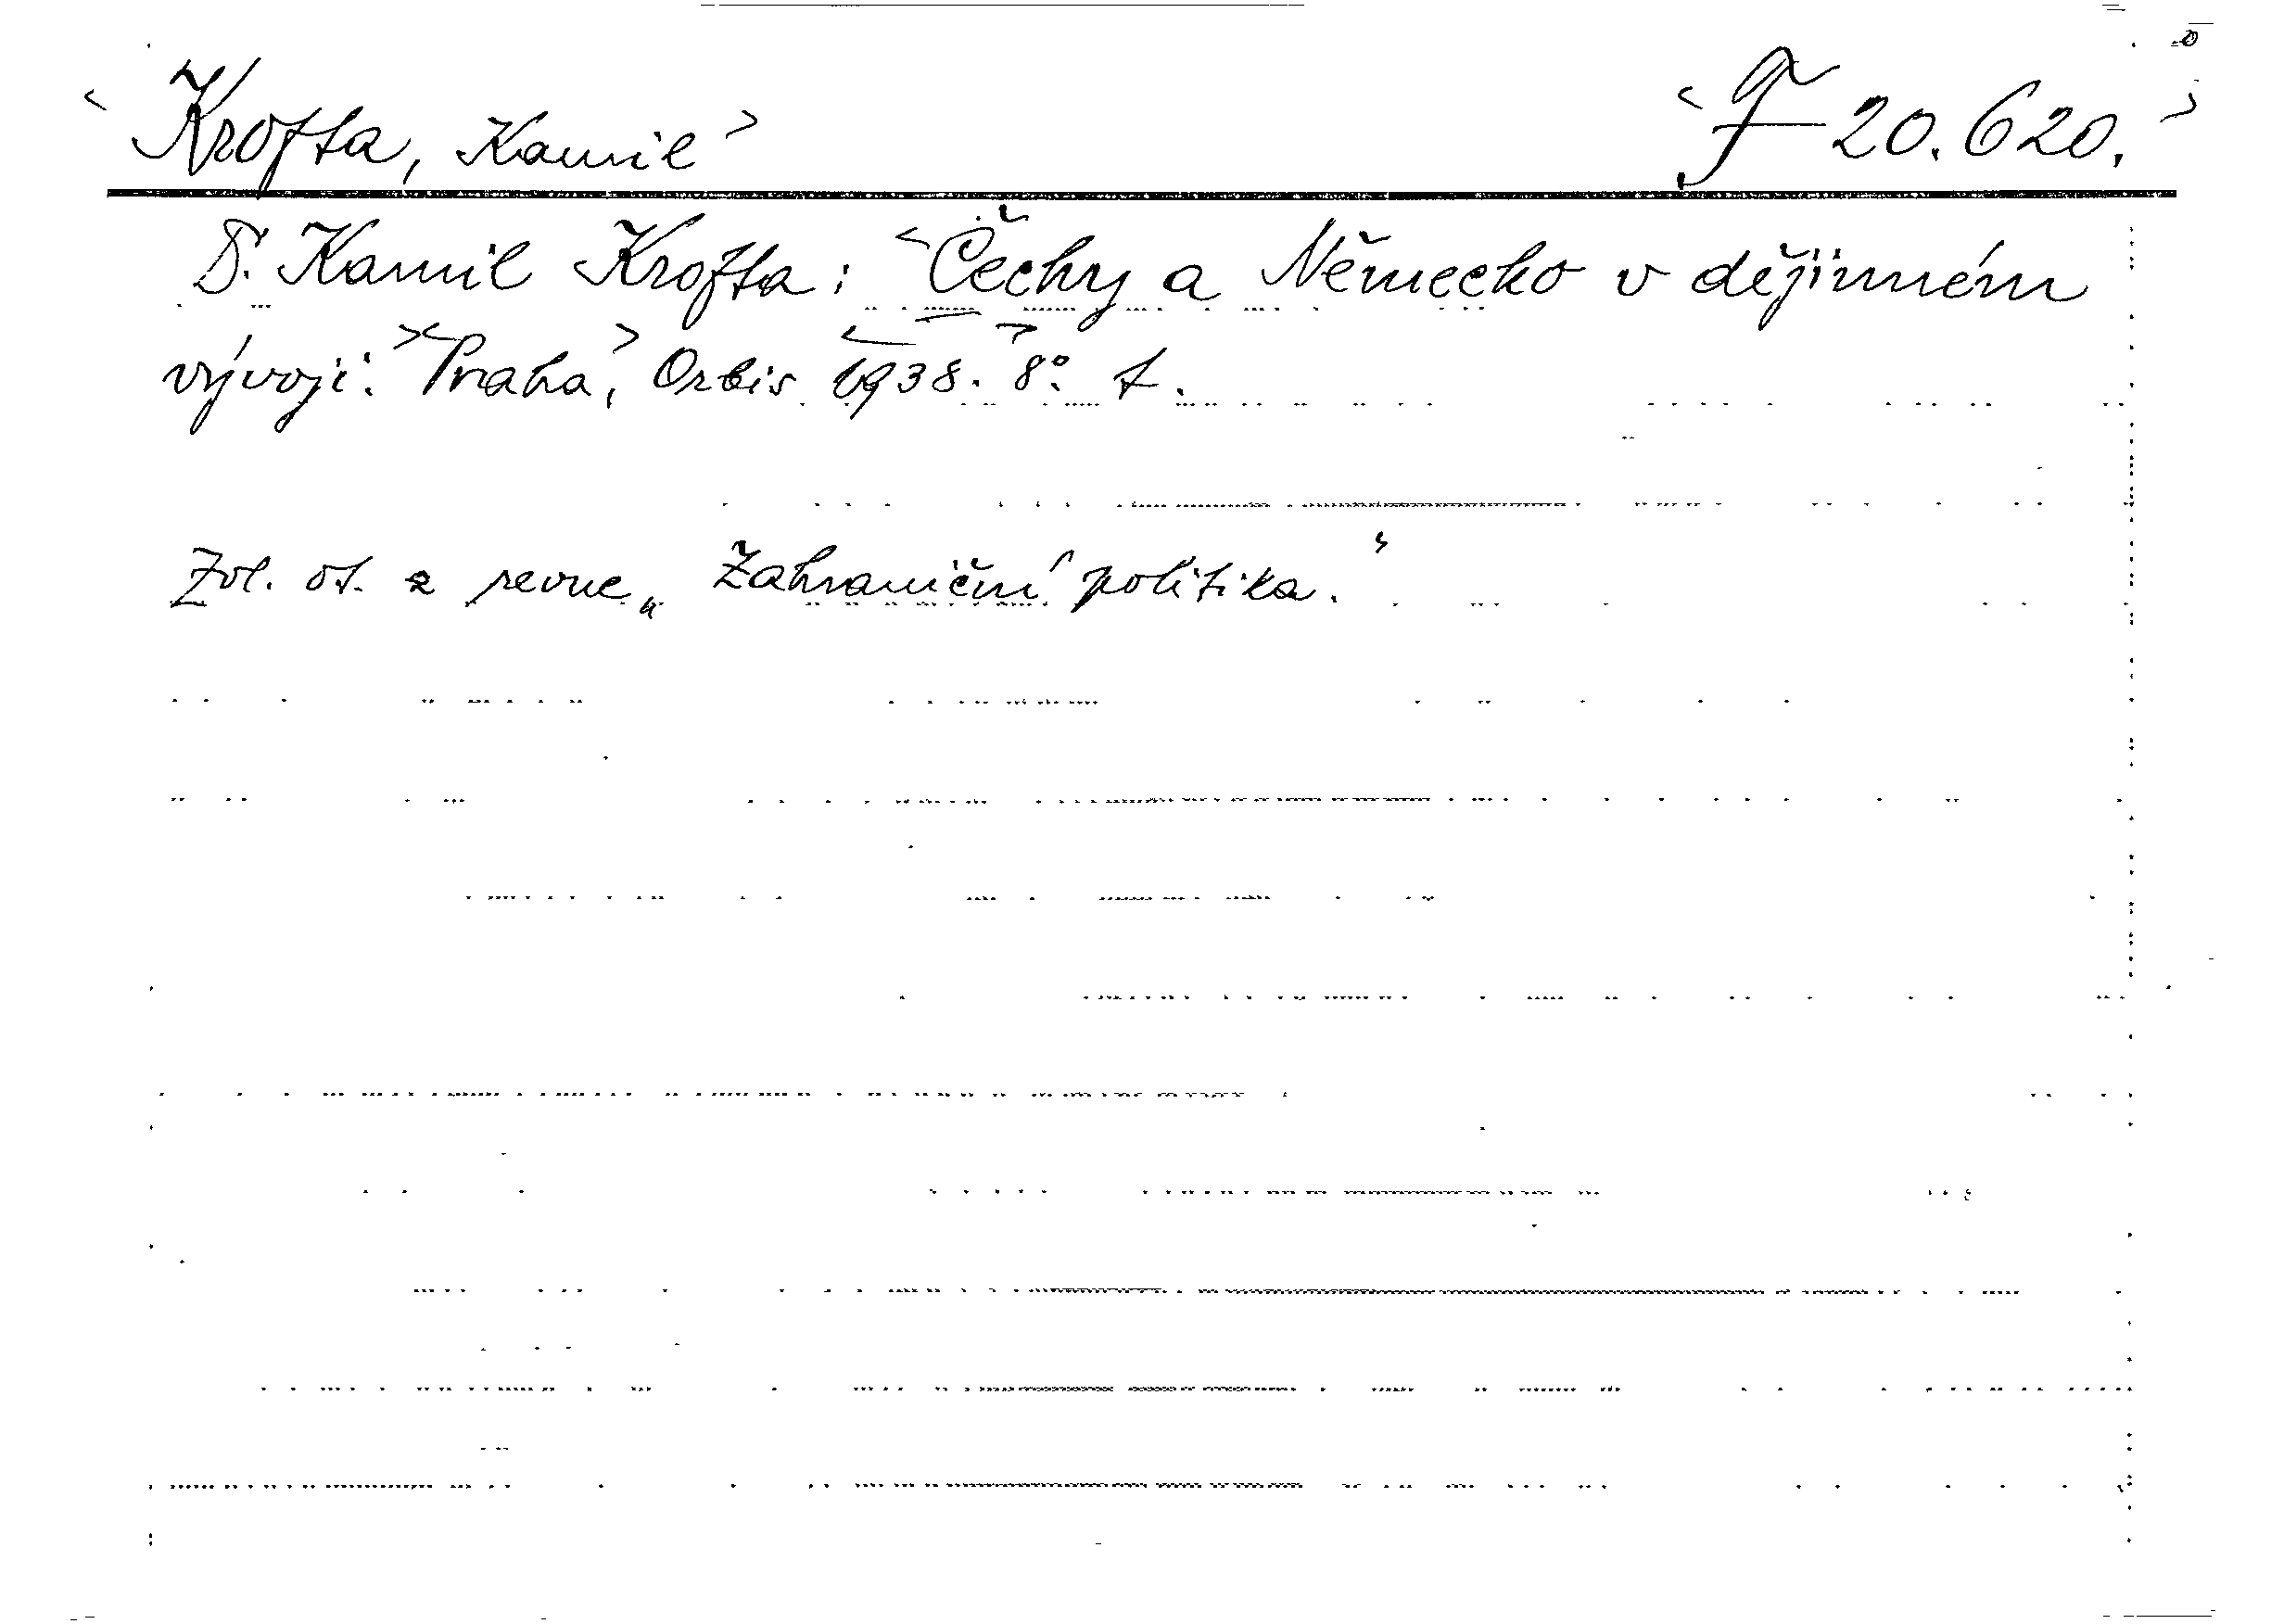 <Krofta, Kamil> <F 20.620.>
D. Kamil Krofta: <Čechy a Německo v dějinném
vývoji.> <Praha,> Orbis <1938.> 8°. t.
Zvl. ot. z revue „Zahraniční politika."